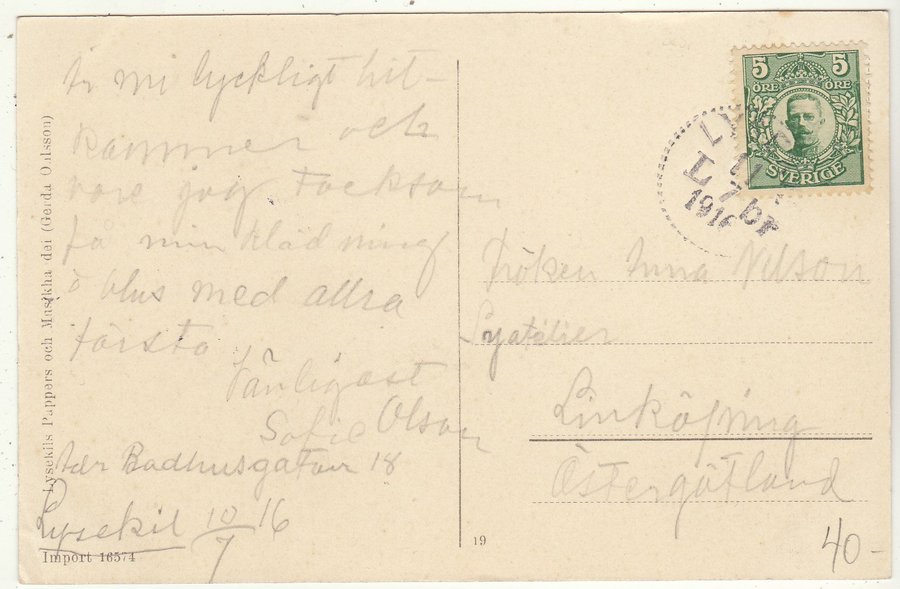 Är nu lyckligt hit-
kommen och
vore jag tacksam
få min klädning
o blus med allra
första
Vänligast
Sofie Olson
Adr Badhusgatan 18
Lysekil 10/7 16
Lysekils Pappers och Musikha del (Gerda Ohlsson)
Import 16574
19
5 5
ÖRE ÖRE
SVERIGE
1916
Fröken Anna Nilson
Syateljer
Linköping
Östergötland
40-